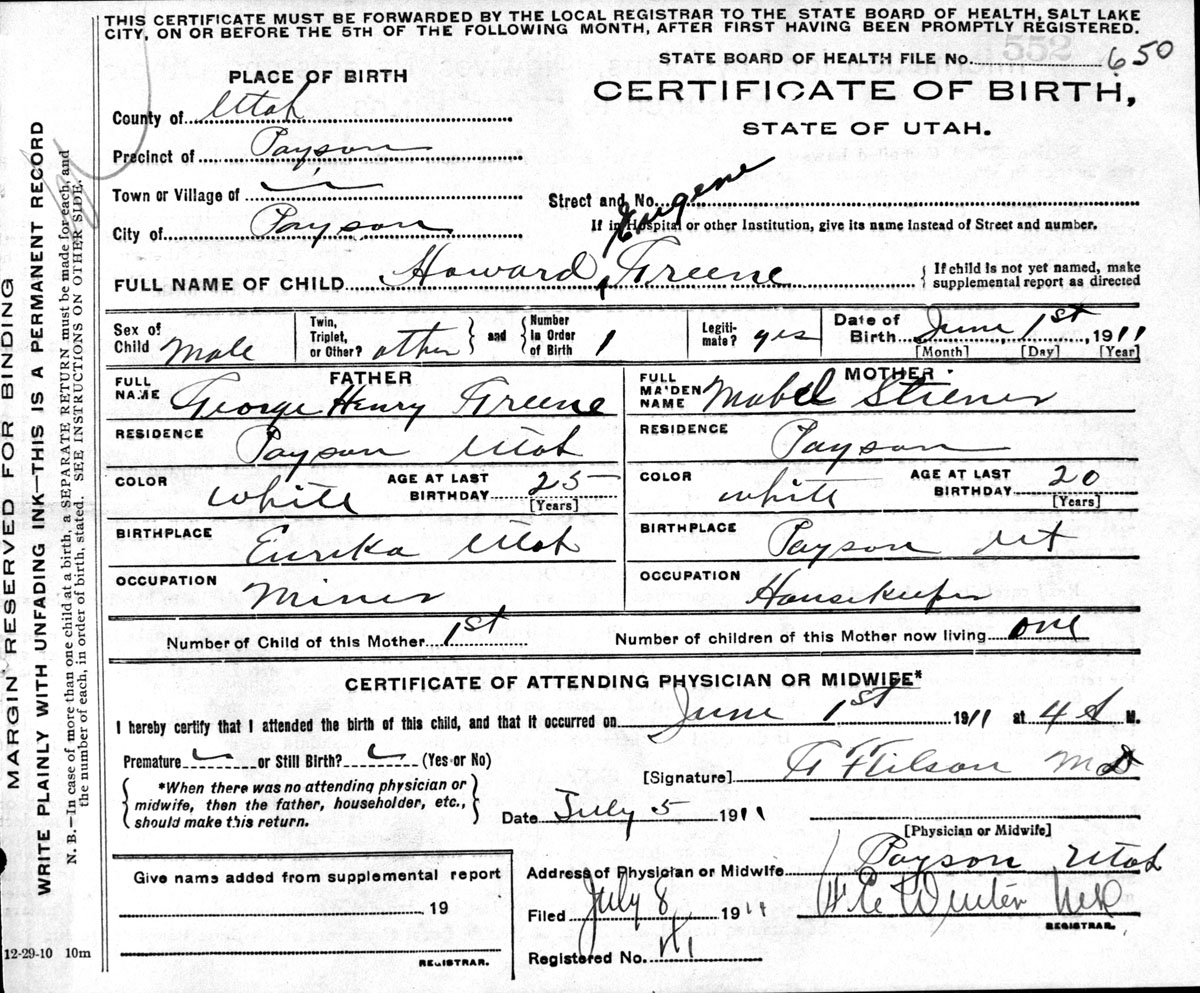 THIS CERTIFICATE MUST BE FORWARDED BY THE LOCAL REGISTRAR TO THE STATE BOARD OF HEALTH, SALT LAKE
CITY, ON OR BEFORE THE 5TH OF THE FOLLOWING MONTH, AFTER FIRST HAVING BEEN PROMPTLY REGISTERED.
STATE BOARD OF HEALTH FILE No. 650
PLACE OF BIRTH
CERTIFICATE OF BIRTH,
STATE OF UTAH.
County of Utah
Precinct of Payson
Town or Village of
Street and No.
City of Payson
If in Hospital or other Institution, give its name instead of Street and number.
Eugene
FULL NAME OF CHILD Howard Greene
If child is not yet named, make
supplemental report as directed
Sex of Child Male
Twin, Triplet, or Other? other and Number in Order of Birth 1
Legiti-mate? yes
Date of Birth June 1st, 1911
[Month] [Day] [Year]
FATHER
FULL NAME George Henry Greene
RESIDENCE Payson Utah
COLOR white AGE AT LAST BIRTHDAY 25
[Years]
BIRTHPLACE Eureka Utah
OCCUPATION Miner
MOTHER
FULL MAIDEN NAME Mabel
RESIDENCE Payson
COLOR white AGE AT LAST BIRTHDAY 20
[Years]
BIRTHPLACE Payson Ut
OCCUPATION Housekeeper
Number of Child of this Mother 1st Number of children of this Mother now living one
CERTIFICATE OF ATTENDING PHYSICIAN OR MIDWIFE*
I hereby certify that I attended the birth of this child, and that it occurred on June 1st 1911 at 4 A M.
Premature or Still Birth? (Yes or No)
[Signature] M D
*When there was no attending physician or
midwife, then the father, householder, etc.,
should make this return.
Date July 5 1911
[Physician or Midwife]
Address of Physician or Midwife Payson Utah
Give name added from supplemental report
, 19
REGISTRAR.
Filed July 8 1911
REGISTRAR.
Registered No.
12-29-10 10m
MARGIN RESERVED FOR BINDING
WRITE PLAINLY WITH UNFADING INK—THIS IS A PERMANENT RECORD
N. B.—In case of more than one child at a birth, a SEPARATE RETURN must be made for each, and
the number of each, in order of birth, stated. SEE INSTRUCTIONS ON OTHER SIDE.